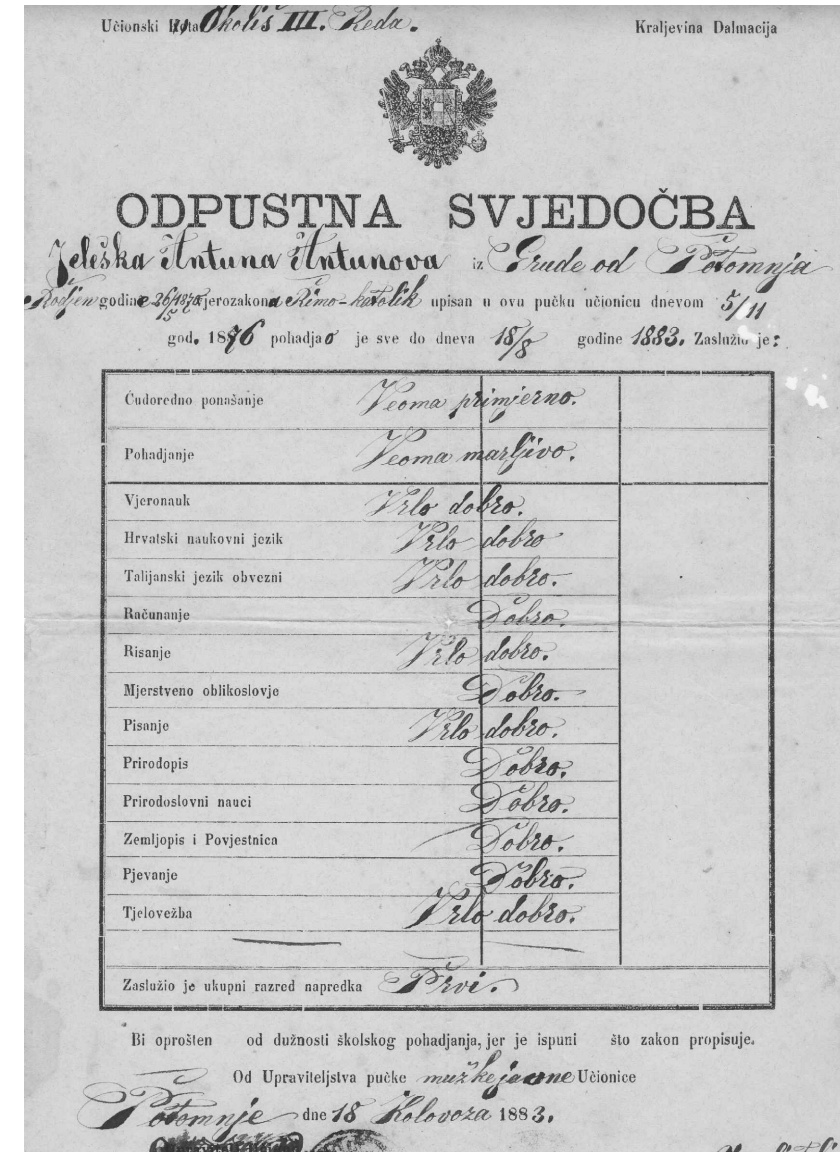 Učionski Kotar Okoliš III. Reda.
Kraljevina Dalmacija
ODPUSTNA SVJEDOČBA
Jeleška Antuna Antunova iz Grude od Potomnja
Rodjen godine 26/5 1870 vjerozakona Rimo-katolik upisan u ovu pučku učionicu dnevom 5/11
god. 1876 pohadjao je sve do dneva 18/8 godine 1883. Zaslužio je:
Ćudoredno ponašanje Veoma primjerno.
Pohadjanje Veoma marljivo.
Vjeronauk Vrlo dobro.
Hrvatski naukovni jezik Vrlo dobro
Talijanski jezik obvezni Vrlo dobro.
Računanje Dobro.
Risanje Vrlo dobro.
Mjerstveno oblikoslovje Dobro.
Pisanje Vrlo dobro.
Prirodopis Dobro.
Prirodoslovni nauci Dobro.
Zemljopis i Povjestnica Dobro.
Pjevanje Dobro.
Tjelovežba Vrlo dobro.
Zaslužio je ukupni razred napredka Prvi.
Bi oprošten od dužnosti školskog pohadjanja, jer je ispuni što zakon propisuje.
Od Upraviteljstva pučke mužke javne Učionice
Potomnje dne 18 Kolovoza 1883.